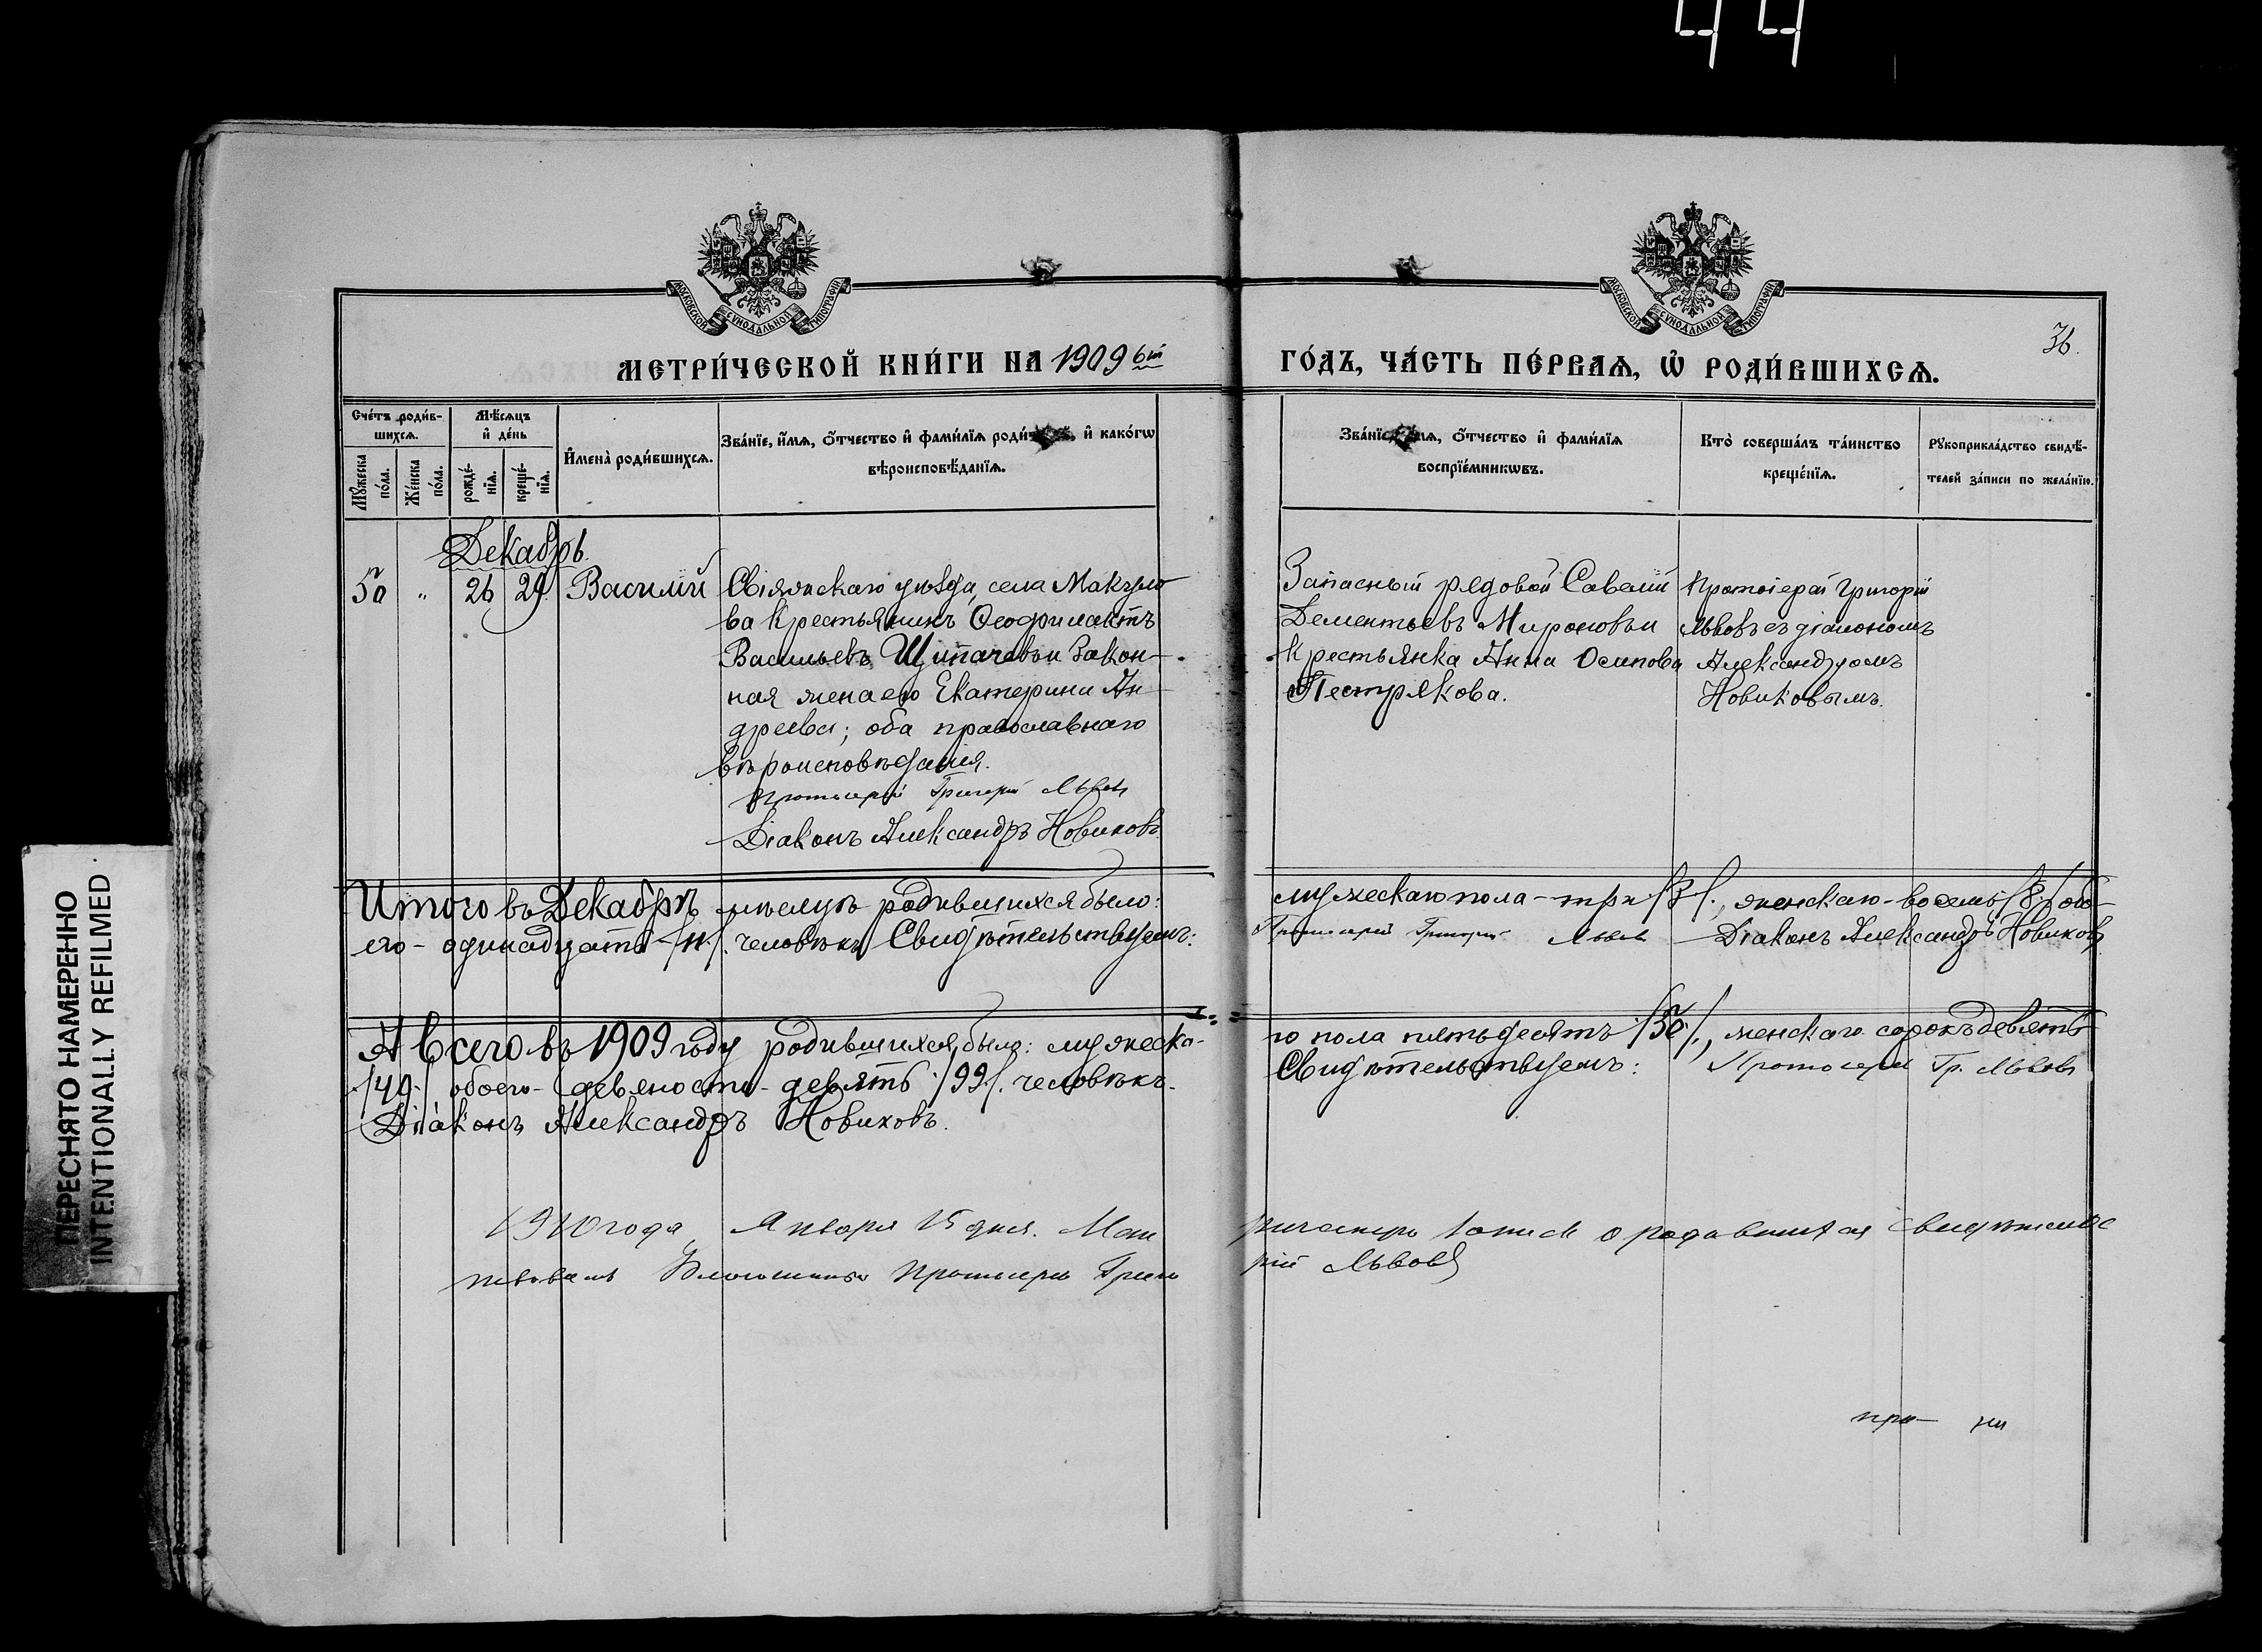 44
МОСКОВСКОЙ СѴНОДАЛЬНОЙ ТИПОГРАФІИ
МОСКОВСКОЙ СѴНОДАЛЬНОЙ ТИПОГРАФІИ
36.
МЕТРИ́ЧЕСКОЙ КНИ́ГИ НА 1909 ый
ГО́ДЪ, ЧА́СТЬ ПЕ́РВАѦ, Ѽ РОДИ́ВШИХСѦ.
Сче́тъ роди́в-
шихсѧ.
Мꙋ́жеска по́ла.
Же́нска по́ла.
Мѣ́сѧцъ
и҆ де́нь
рожде́-
нїѧ.
креще́-
нїѧ.
И҆мена̀ роди́вшихсѧ.
Зва́нїе, и҆́мѧ, ѻ҆́тчество и҆ фами́лїѧ роди́ и҆ како́гѡ
вѣроисповѣ́данїѧ.
Зва́нї ѻ҆́тчество и҆ фами́лїѧ
воспрїе́мникѡвъ.
Кто̀ соверша́лъ та́инство
креще́нїѧ.
Рꙋкоприкла́дство свидѣ́-
телей за́писи по жела́нїю.
Декабрь.
50 " 26 29. Василій
Свіяжскаго уѣзда, села Макуло-
ва крестьянинъ Ѳеофилактъ
Васильевъ Щипачевъ и закон-
ная жена его Екатерина Ан-
дреева; оба православнаго
вѣроисповѣданія.
Протоіерей Григорій Львовъ
Діаконъ Александръ Новиковъ.
Запасный рядовой Савелій
Дементьевъ Мироновъ и
крестьянка Анна Осипова
Пестрякова.
Протоіерей Григорій
Львовъ съ діакономъ
Александромъ
Новиковымъ.
Итого въ Декабрѣ мѣсяцѣ родившихся было:
мужескаго пола - три /3/., женскаго - восемь /8/ обо-
его - одинадцать /11/. человѣкъ Свидѣтельствуемъ:
Протоіерей Григорій Львовъ Діаконъ Александръ Новиковъ
А всего въ 1909 году родившихся было: мужеска-
го пола пятьдесятъ /50/., женскаго сорокъ девять
/49/ обоего - девяносто - девять /99/. человѣкъ.
Свидѣтельствуемъ: Протоіерей Гр. Львовъ
Діаконъ Александръ Новиковъ.
1910 года Января 15 дня.
о родившихся свидѣтельс
твовалъ Благочинный Протоіерей Григо
рій Львовъ
ПЕРЕСНЯТО НАМЕРЕННО
INTENTIONALLY REFILMED